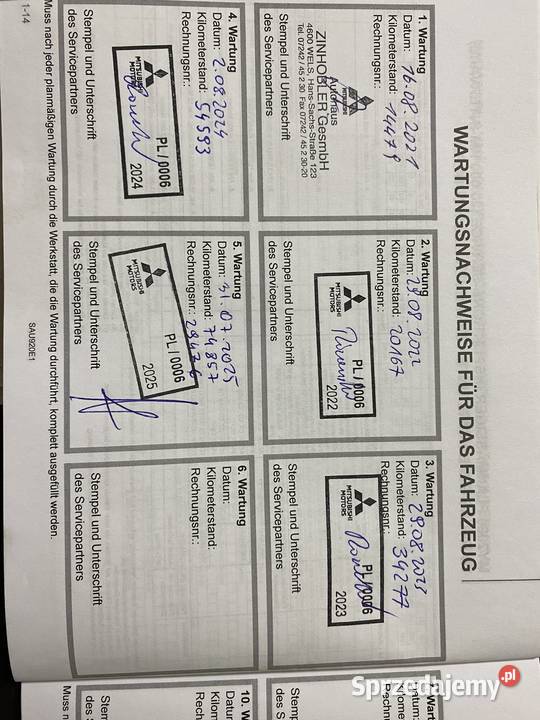 WARTUNGSNACHWEISE FÜR DAS FAHRZEUG
1. Wartung
Datum: 16.08.2021
Kilometerstand: 14479
Rechnungsnr.:
Autohaus
ZINHOBLER GesmbH
4600 WELS, Hans-Sachs-Straße 123
Tel. 07242 / 45 2 30 Fax 07242 / 45 2 30-20
Stempel und Unterschrift
des Servicepartners
2. Wartung
Datum: 29.08.2022
Kilometerstand: 20167
Rechnungsnr.:
MITSUBISHI
MOTORS
PL / 0006
2022
Stempel und Unterschrift
des Servicepartners
3. Wartung
Datum: 29.08.2023
Kilometerstand: 34277
Rechnungsnr.:
MITSUBISHI
MOTORS
PL / 0006
2023
Stempel und Unterschrift
des Servicepartners
4. Wartung
Datum: 2.08.2024
Kilometerstand: 54593
Rechnungsnr.:
MITSUBISHI
MOTORS
PL / 0006
2024
Stempel und Unterschrift
des Servicepartners
5. Wartung
Datum: 31.07.2025
Kilometerstand: 74857
Rechnungsnr.:
MITSUBISHI
MOTORS
PL / 0006
2025
Stempel und Unterschrift
des Servicepartners
6. Wartung
Datum:
Kilometerstand:
Rechnungsnr.:
Stempel und Unterschrift
des Servicepartners
Muss nach jeder planmäßigen Wartung durch die Werkstatt, die die Wartung durchführt, komplett ausgefüllt werden.
1-14
SAU920E1
10. W
Datu
Kilo
Rech
Stem
des S
Muss n
Sprzedajemy.pl